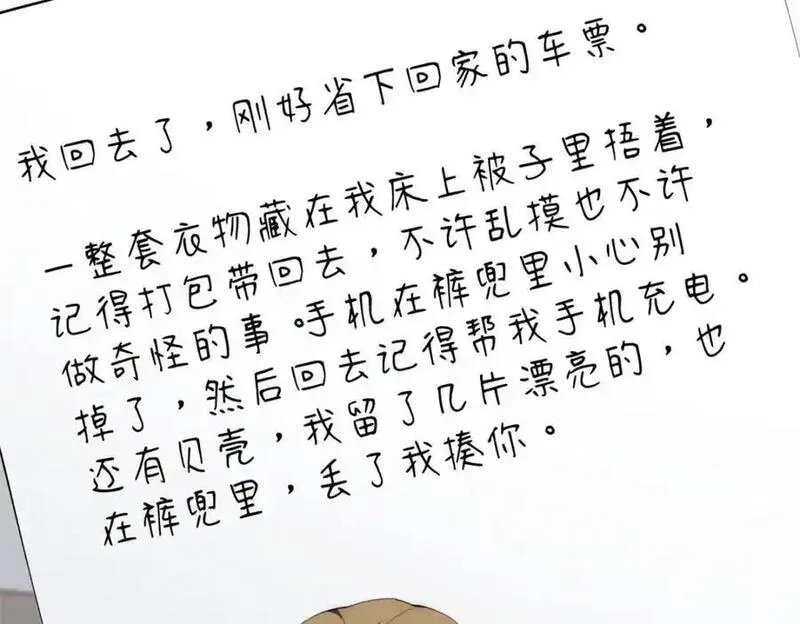 我回去了，刚好省下回家的车票。
一整套衣物藏在我床上被子里捂着，
记得打包带回去，不许乱摸也不许
做奇怪的事。手机在裤兜里小心别
掉了，然后回去记得帮我手机充电。
还有贝壳，我留了几片漂亮的，也
在裤兜里，丢了我揍你。